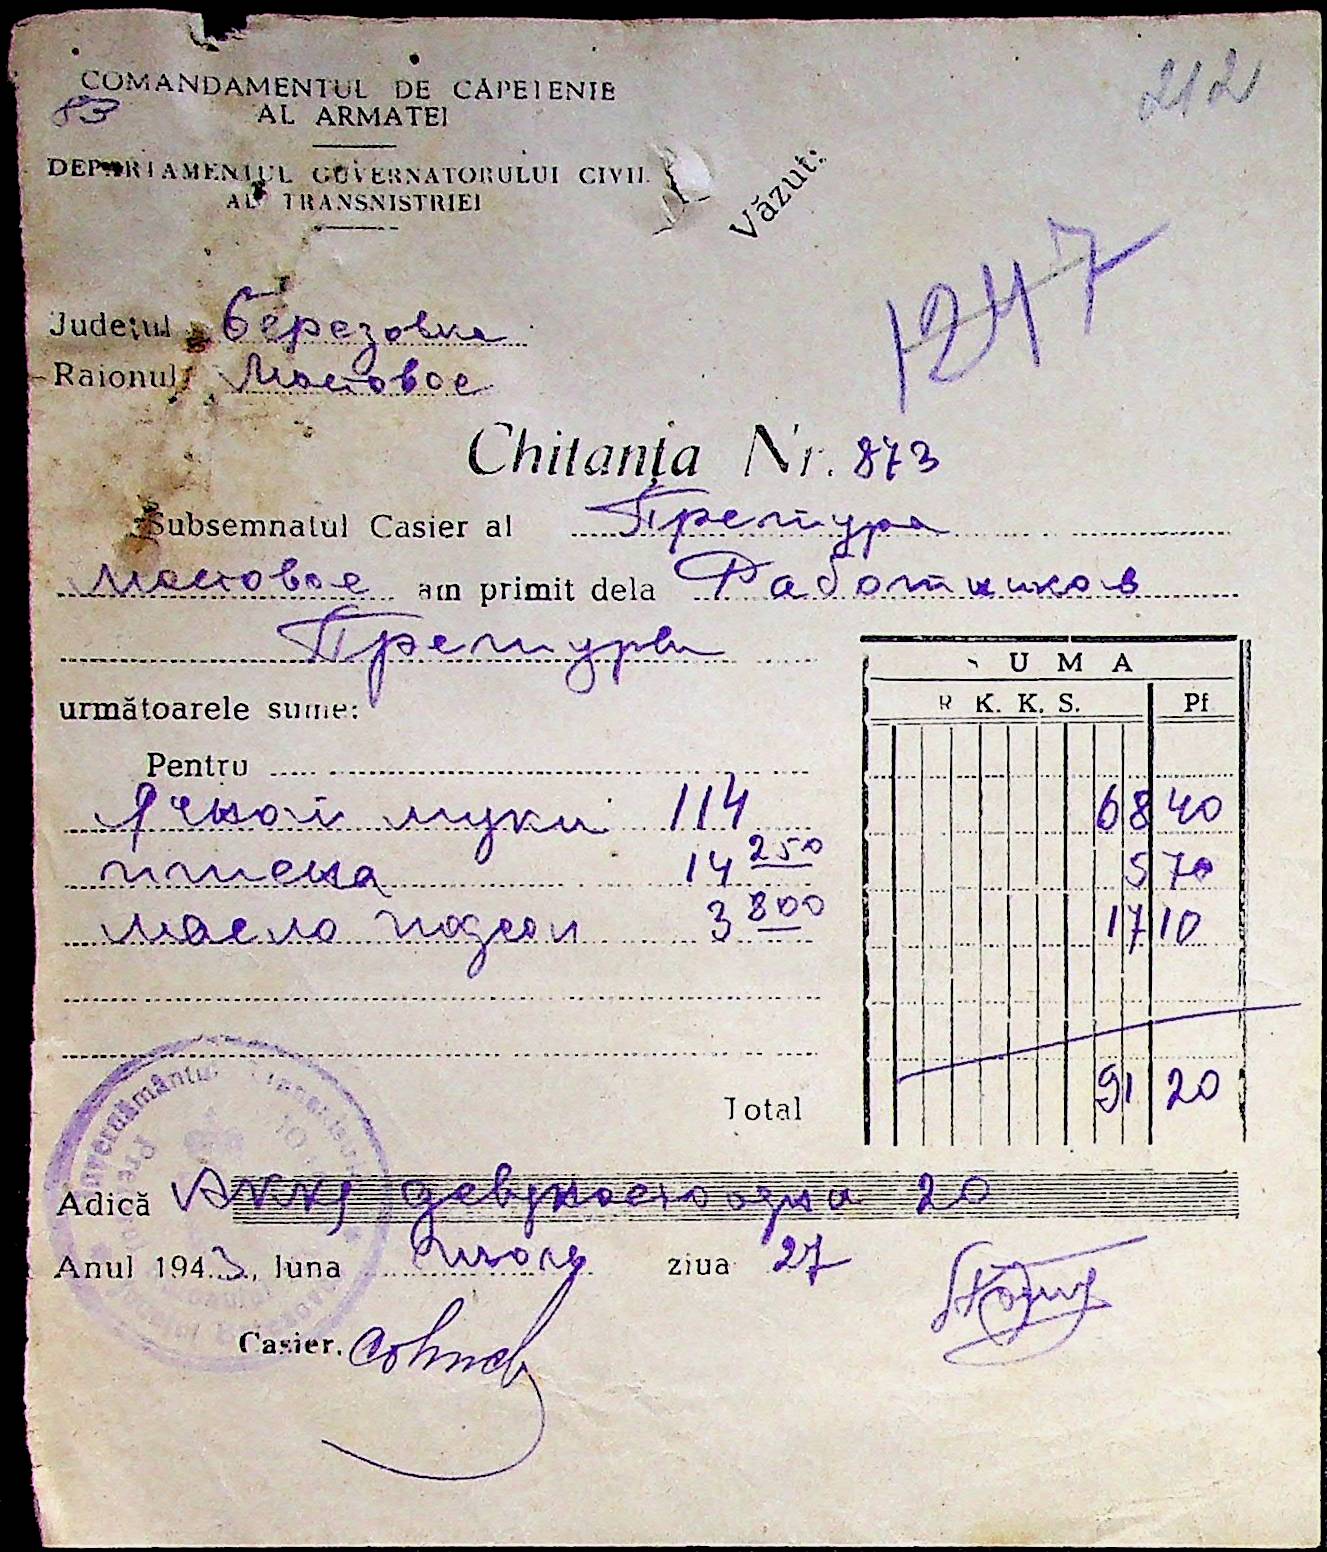 212
COMANDAMENTUL DE CAPETENIE
83
AL ARMATEI
DEPARTAMENTUL GUVERNATORULUI CIVIL
AL TRANSNISTRIEI
Văzut:
1247
Județul Березовка
Raionul Мостовое
Chitanța Nr. 873
Subsemnatul Casier al Претура
Мостовое am primit dela Работников
Претуры
SUMA
R. K. K. S. Pf
următoarele sume:
Pentru
Ячной муки 114 68 40
пшена 14 250 5 70
масло подсол 3 800 17 10
Total 91 20
Adică девяносто одна 20
Anul 1943, luna Июль ziua 27
Casier.